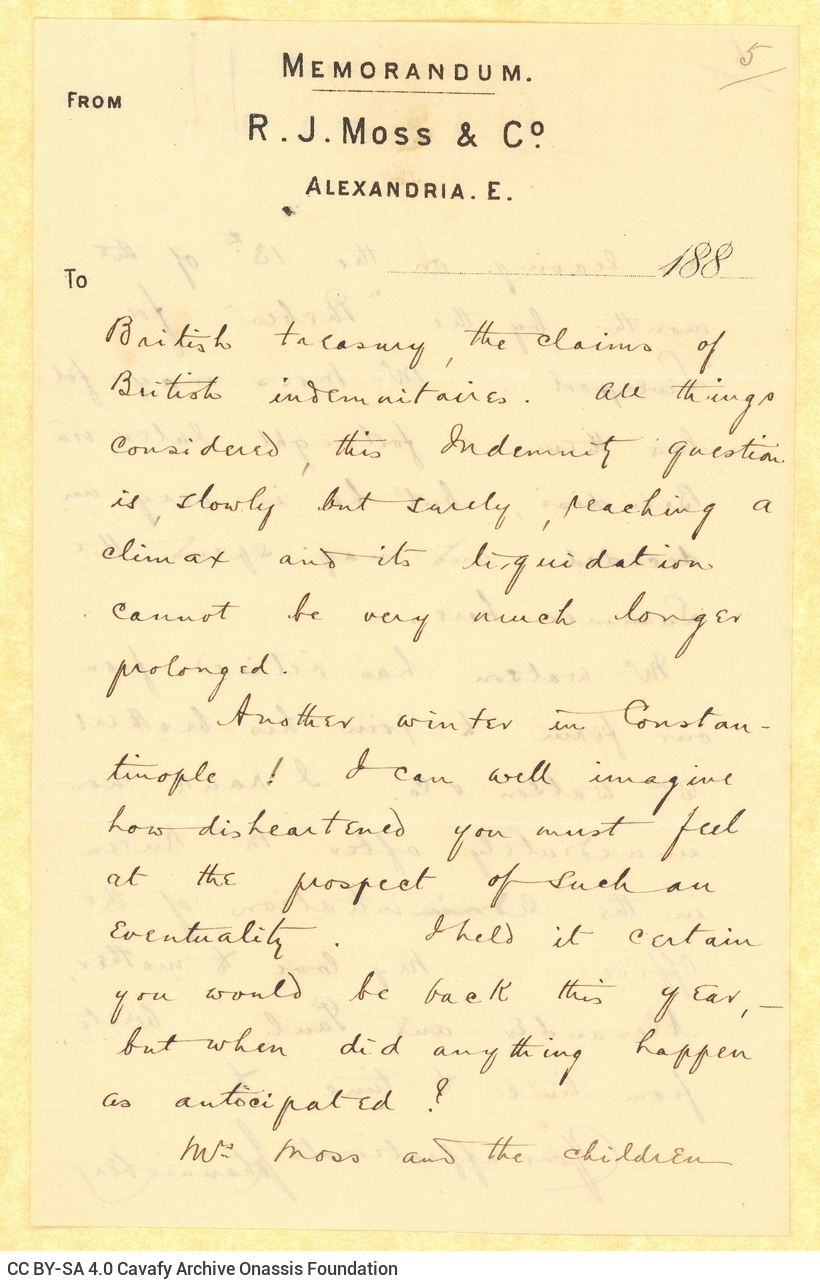 5
MEMORANDUM.
FROM
R. J. Moss & Cº
ALEXANDRIA. E.
188
To
British treasury, the claims of
British indemnitaires. All things
considered, this Indemnity question
is, slowly but surely, reaching a
climax and its liquidation
cannot be very much longer
prolonged.
Another winter in Constan-
tinople! I can well imagine
how disheartened you must feel
at the prospect of such an
eventuality. I held it certain
you would be back this year, —
but when did anything happen
as anticipated?
Mrs Moss and the children
CC BY-SA 4.0 Cavafy Archive Onassis Foundation